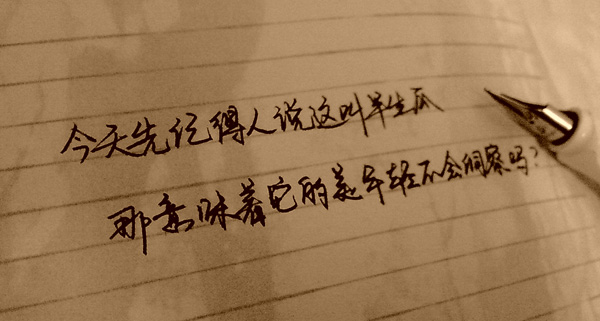 今天先记得人说这叫半生瓜
那意味着它的美年轻不会洞察吗?